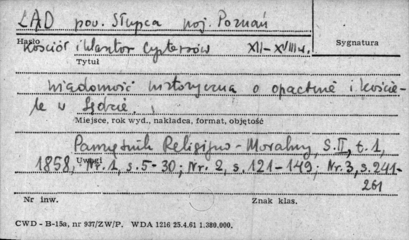 LĄD pow. Słupca woj. Poznań
Hasło
Kościół i klasztor cystersów XII-XVIII w.
Sygnatura
Tytuł
Wiadomość historyczna o opactwie i koście-
le w Lądzie.
Miejsce, rok wyd., nakładca, format, objętość
Pamiętnik Religijno-Moralny, S.II, t.1,
Uwagi
1858, Nr.1, s.5-30; Nr.2, s.121-149; Nr.3, s.241-
261
Nr inw.
Znak klas.
CWD - B-15a, nr 937/ZW/P. WDA 1216 25.4.61 1.380.000.